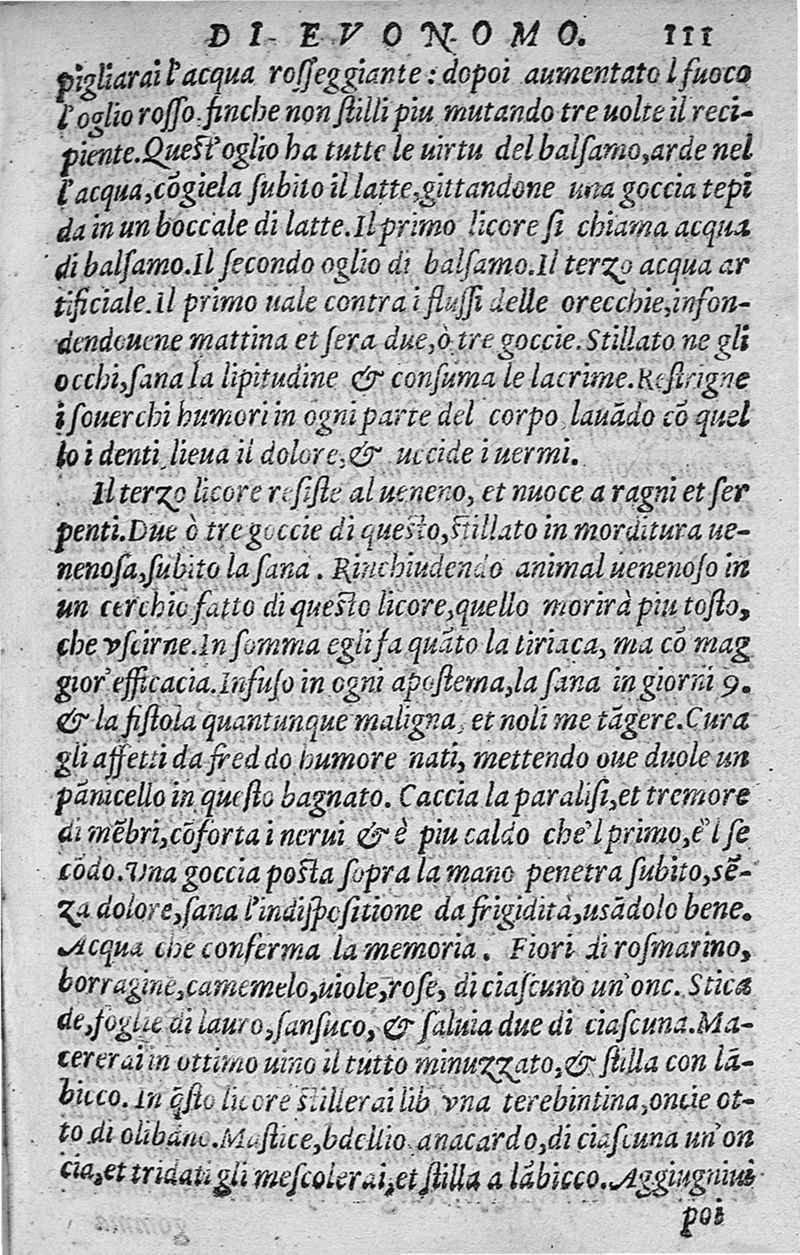 DI EVONOMO. 111
pigliarai l'acqua rosseggiante: dopoi aumentato l fuoco
l'oglio rosso. finche non stilli piu mutando tre uolte il reci-
piente. Quest'oglio ha tutte le uirtu del balsamo, arde nel
l'acqua, cõgiela subito il latte, gittandone una goccia tepi
da in un boccale di latte. Il primo licore si chiama acqua
di balsamo. Il secondo oglio di balsamo. Il terzo acqua ar
tificiale. Il primo uale contra i flussi delle orecchie, infon-
dendouene mattina et sera due, ò tre goccie. Stillato ne gli
occhi, sana la lipitudine & consuma le lacrime. Restrigne
i souerchi humori in ogni parte del corpo, lauãdo cõ quel
lo i denti, lieua il dolore, & uccide i uermi.
Il terzo licore resiste al ueneno, et nuoce a ragni et ser
penti. Due ò tre goccie di questo, stillato in morditura ue-
nenosa, subito la sana. Rinchiudendo animal uenenoso in
un cerchio fatto di questo licore, quello morirà piu tosto,
che vscirne. In somma egli fa quãto la tiriaca, ma cõ mag
gior' efficacia. Infuso in ogni apostema, la sana in giorni 9.
& la fistola quantunque maligna, et noli me tãgere. Cura
gli affetti da freddo humore nati, mettendo oue duole un
pãnicello in questo bagnato. Caccia la paralisi, et tremore
di mẽbri, cõforta i nerui & è piu caldo che'l primo, e'l se
cõdo. Vna goccia posta sopra la mano penetra subito, sẽ-
za dolore, sana l'indispositione da frigidità, usãdolo bene.
Acqua che conferma la memoria. Fiori di rosmarino,
borragine, camemelo, uiole, rose, di ciascuno un'onc. Stica
de, foglie di lauro, sansuco, & saluia due di ciascuna. Ma-
cererai in ottimo uino il tutto minuzzato, & stilla con lã-
bicco. In q̃sto licore stillerai lib vna terebintina, oncie ot-
to di olibano. Mastice, bdellio anacardo, di ciascuna un'on
cia, et tridati gli mescolerai, et stilla a lãbicco. Aggiugniui
poi